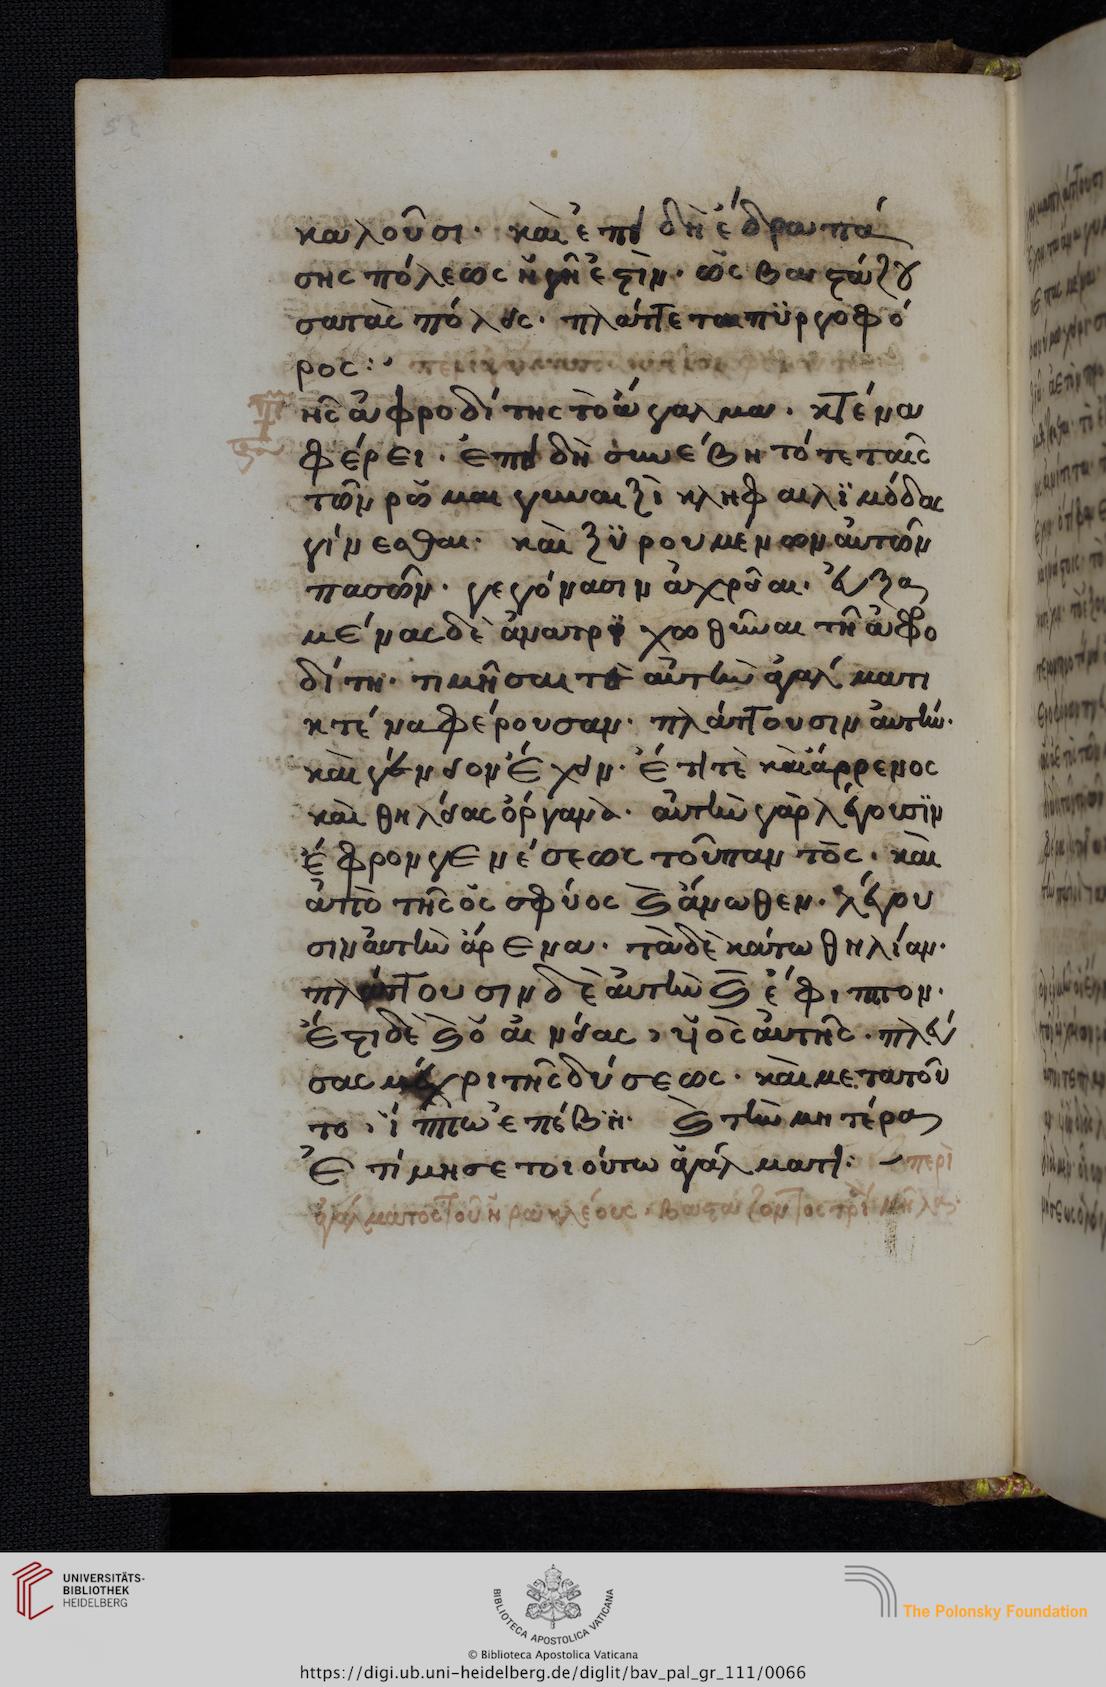 καλοῦσι· καὶ ἐπει δὴ ἕδρα πά
σης πόλεως ἡ γῆ ἐστὶν· ὡς βαστάζου
σα τὰς πόλεις· πλάττεται πυργοφό
ρος:
τῆς ἀφροδίτης τὸ ἄγαλμα· κτένα
φέρει· ἐπει δὴ συνέβη τότε ταῖς
τῶν ρωμαι γυναιξὶ κνηφαὶ λϊμόδας
γίνεσθαι· καὶ ξϋρουμένων αὐτῶν
πασῶν· γεγόνασιν ἀχρεῖαι· εὐξα
μένας δὲ ἀνατρι χωθῆναι τῆ ἀφρο
δίτη· τιμῆσαι τε αὐτὴν ἀγάλματι
κτένα φέρουσαν· πλάττουσιν αὐτὴν·
καὶ γένειον ἔχειν· ἔτϊ τὲ καὶ ἄρρενος
καὶ θηλείας ὄργανα· αὐτὴν γὰρ λέγουσϊν
ἔφρον γενέσεως τοῦ παντὸς· καὶ
ἀπὸ τῆς ὀσφύος καὶ ἄνωθεν· λέγου
σιν αὐτὴν ἄρενα· τὰ δὲ κάτω θηλίαν·
πλάττουσιν δὲ αὐτὴν καὶ ἔφιππον·
ἔστι δὲ καὶ ὁ αἰνείας, υἱὸς αὐτῆς· πλεύ
σας μέχρι τῆς δύσεως· καὶ μετα τοῦ
το ἵππω ἐπέβη· καὶ τὴν μητέρα
ἐτίμησε τοιούτω ἀγάλματϊ: περὶ
ἀγάλματος τοῦ ἡρακλέους· βαστάζοντος τρία μῆλα·
UNIVERSITÄTS-
BIBLIOTHEK
HEIDELBERG
BIBLIOTECA APOSTOLICA VATICANA
The Polonsky Foundation
© Biblioteca Apostolica Vaticana
https://digi.ub.uni-heidelberg.de/diglit/bav_pal_gr_111/0066